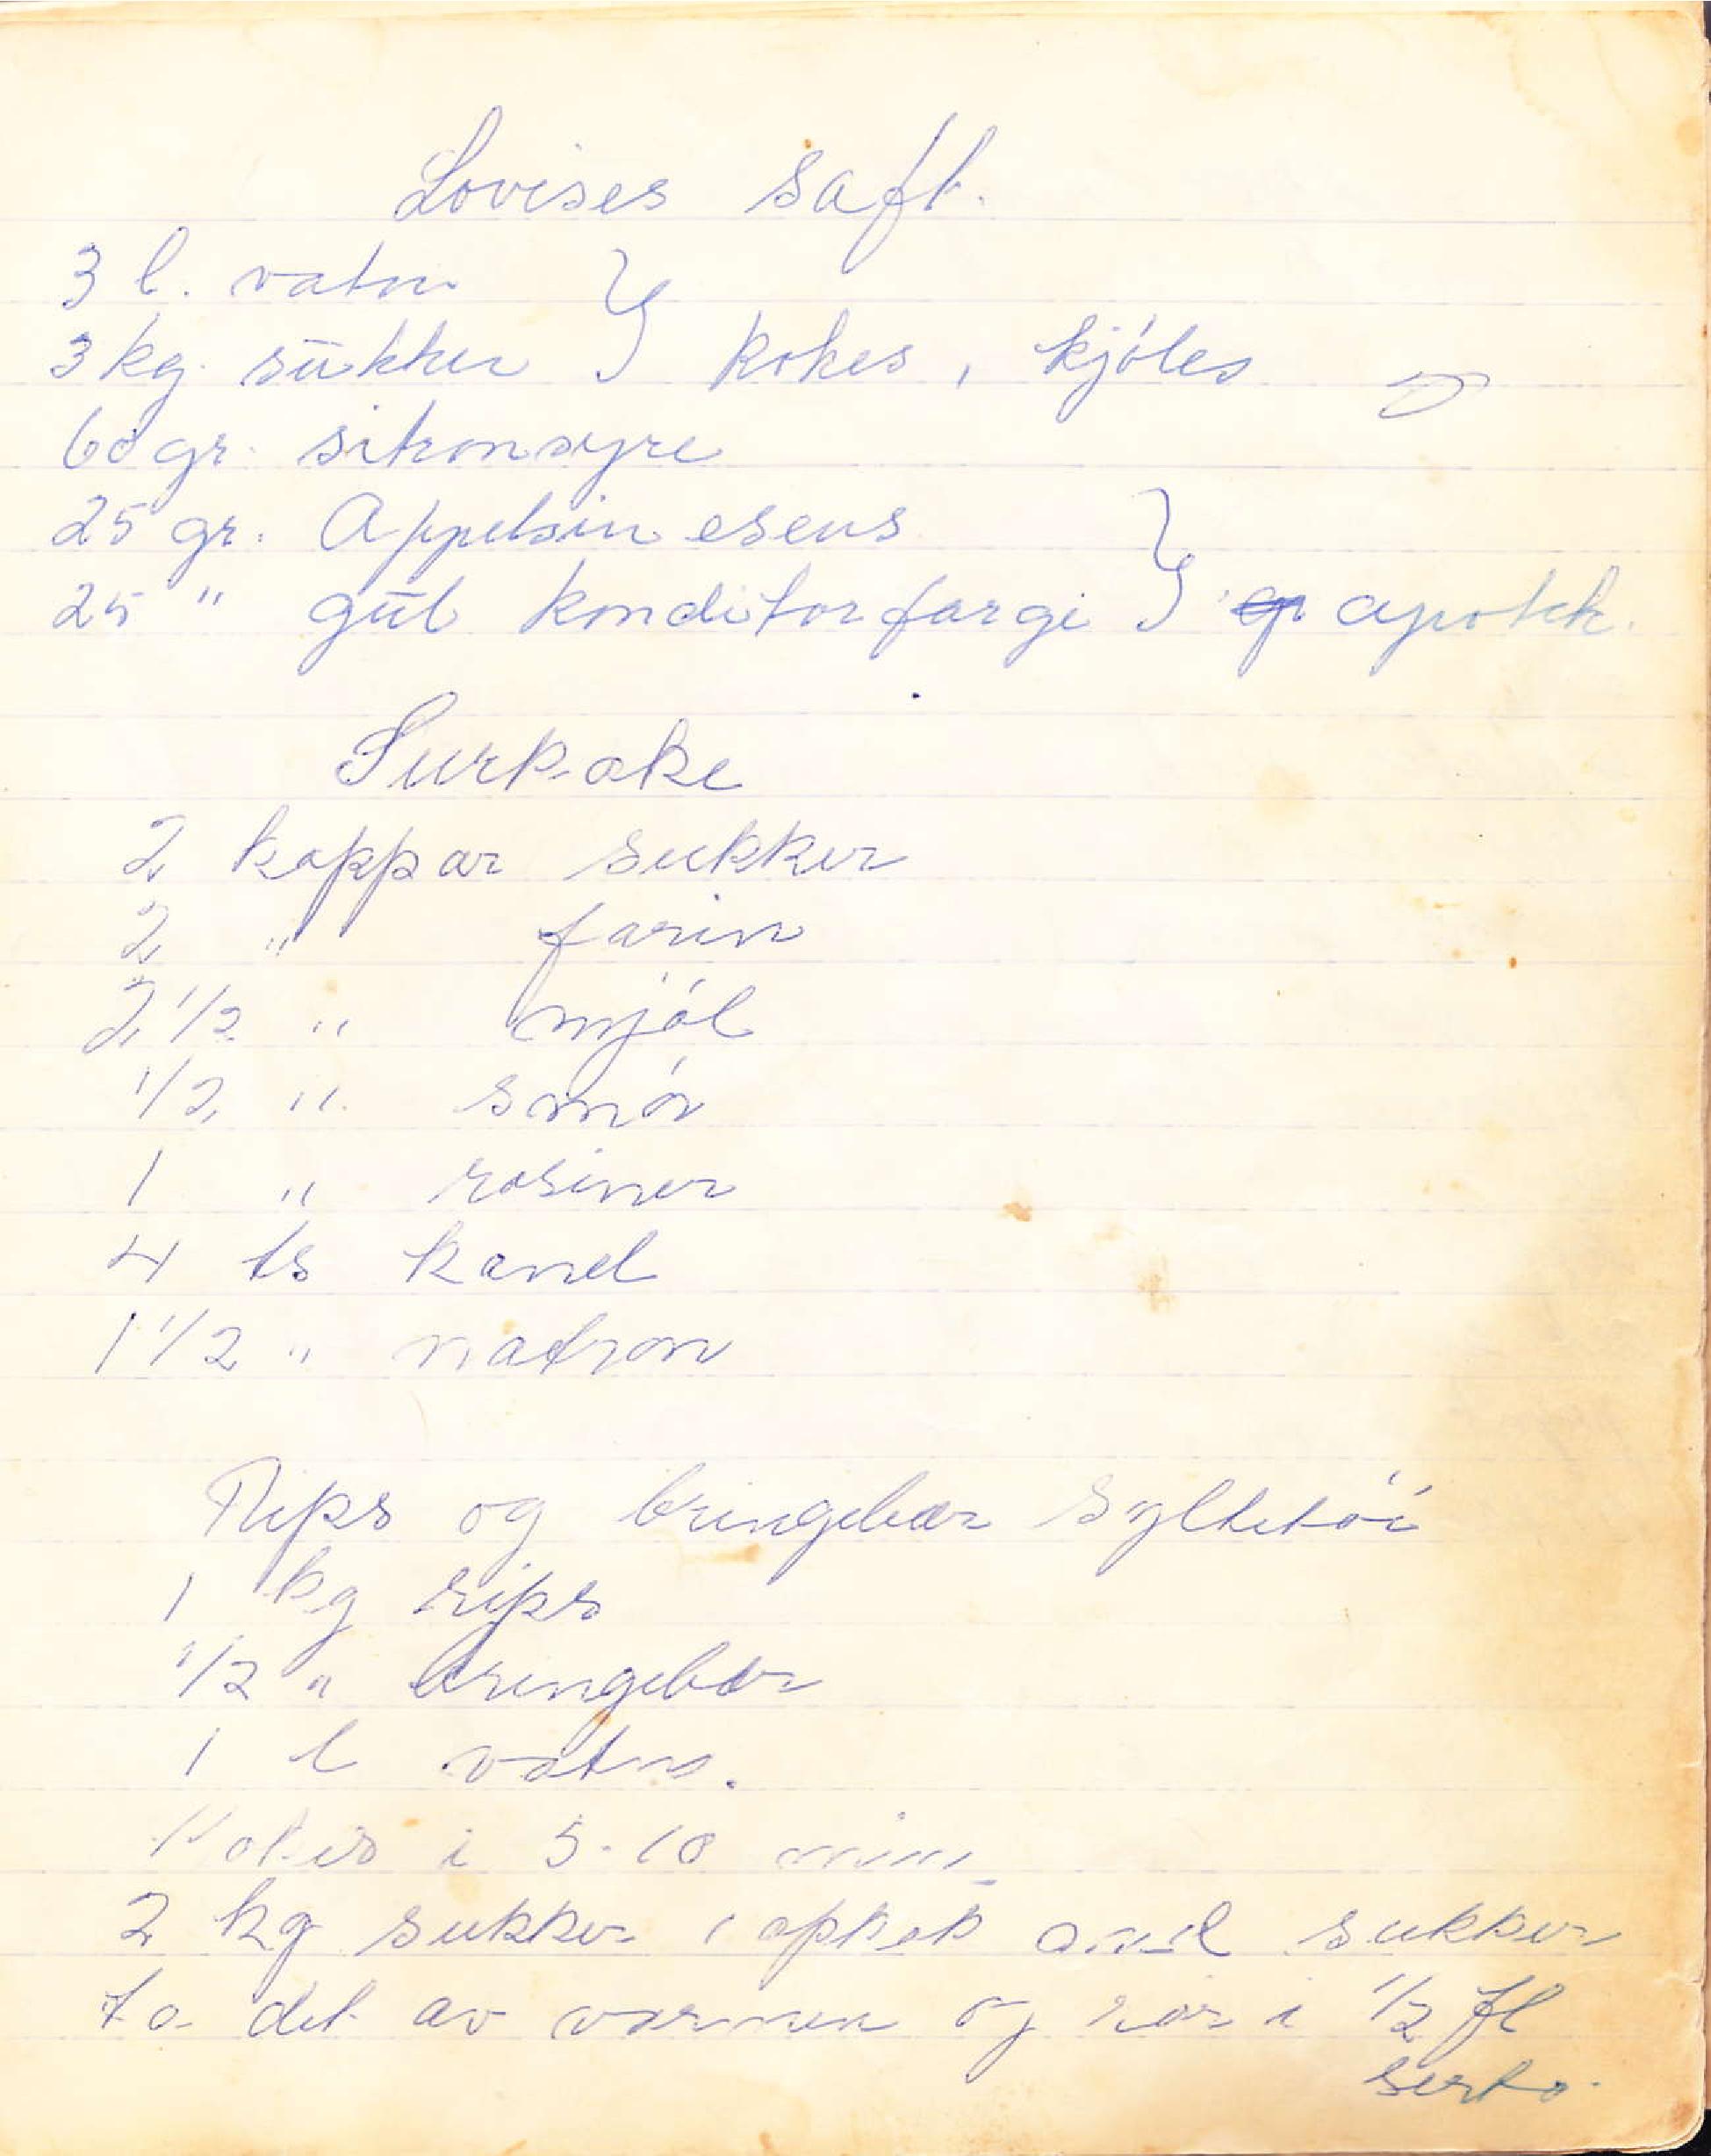 Lovises saft.
3 l. vatn }
3 kg. sukker } kokes, kjóles
60 gr. sitronsyre
25 gr. Appelsin esens }
25 " gul konditorfargi } apotek.
Surkake
2 koppar sukker
2 " farin
2 1/2 " mjól
1/2 " smór
1 " rosiner
4 ts kanel
1 1/2 " natron
Rips og bringebær syltetói
1 kg rips
1/2 " bringebær
1 l vatn.
Kokes i 5-10 min
2 kg sukker 1 oppkok sukker
ta det av varmen og rór i 1/2 fl
serto.